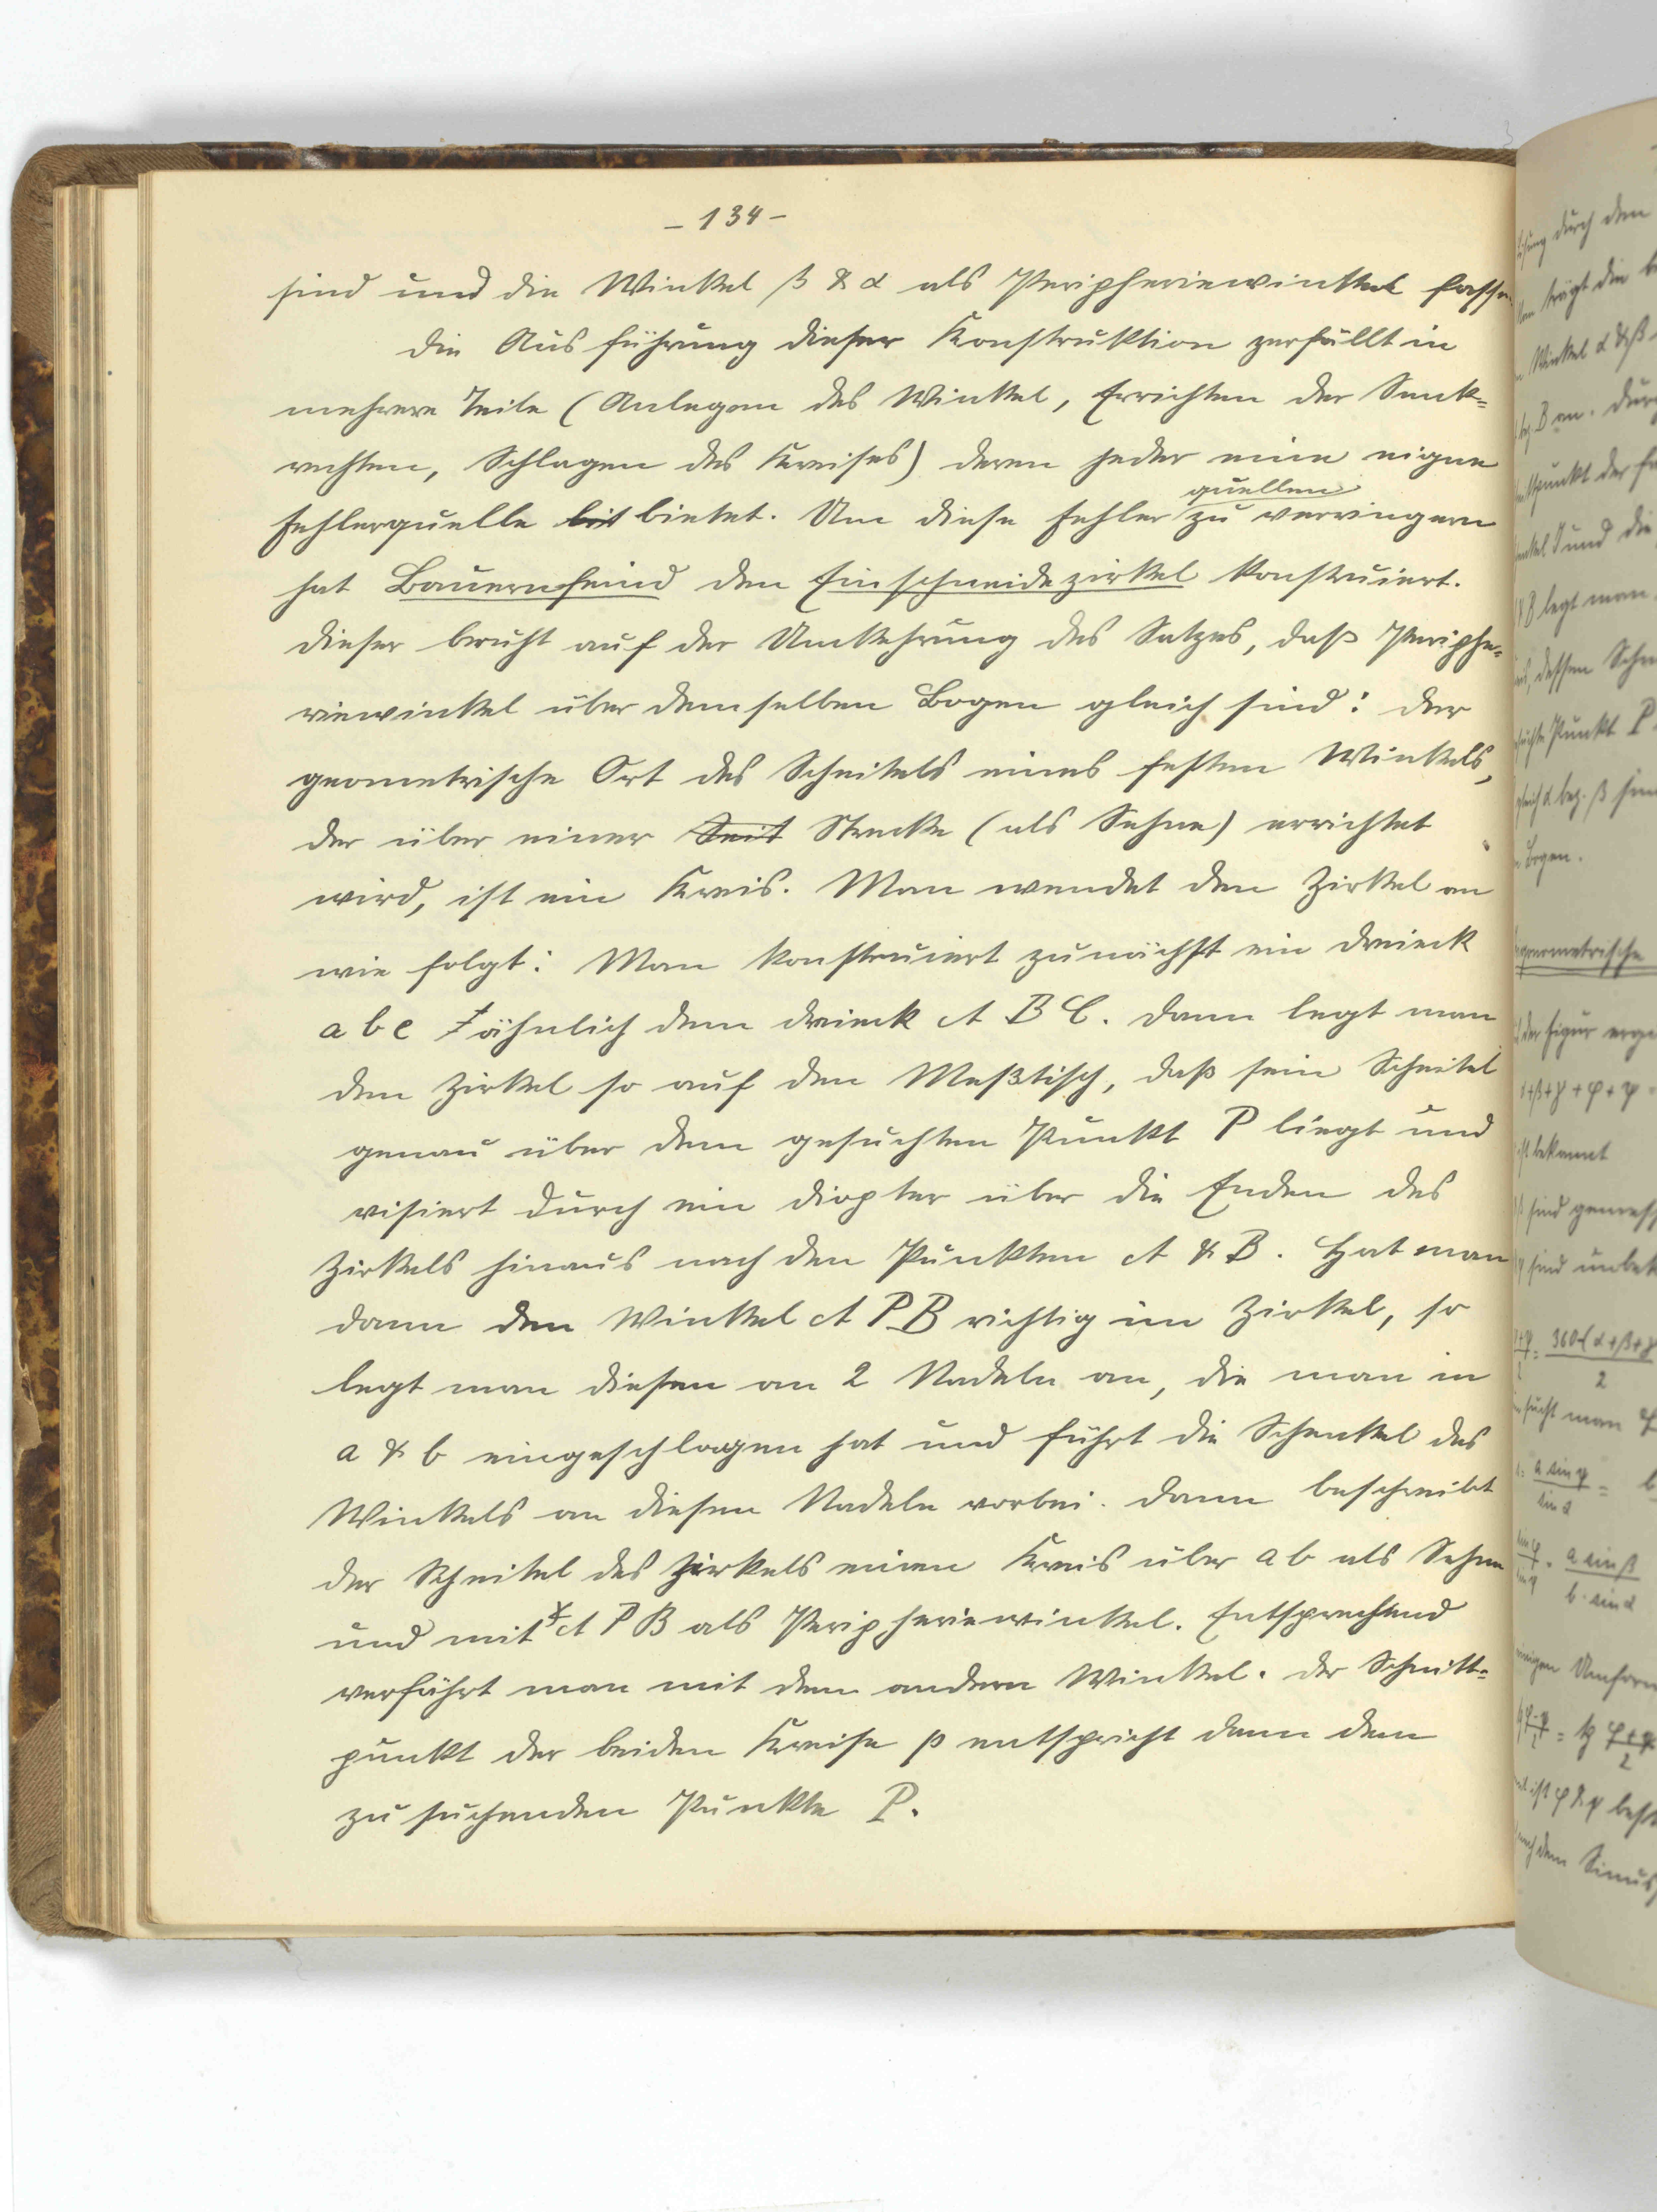 - 134 -
sind und die Winkel β & α als Peripheriewinkel fassen
Die Ausführung dieser Konstruktion zerfällt in
mehrere Teile (Anlegen des Winkel, Errichten der Senk=
rechten, Schlagen des Kreises) deren jeder eine eigne
quellen
Fehlerquelle bit bietet. Um diese Fehler zu verringern
hat Bauernfeind den Einschneidezirkel konstruiert.
Dieser beruht auf der Umkehrung des Satzes, daß Periphe=
riewinkel über demselben Bogen gleich sind: Der
geometrische Ort des Scheitels eines festen Winkels,
der über einer Seit Strecke (als Sehne) errichtet
wird, ist ein Kreis. Man wendet den Zirkel an
wie folgt: Man konstruiert zunächst ein Dreieck
a b c ähnlich dem Dreieck A B C. Dann legt man
den Zirkel so auf den Meßtisch, daß sein Scheitel
genau über dem gesuchten Punkt P liegt und
visiert durch ein Diopter über die Enden des
Zirkels hinaus nach den Punkten A & B. Hat man
dann den Winkel A P B richtig im Zirkel, so
legt man diesen an 2 Nadeln an, die man in
a & b eingeschlagen hat und führt die Schenkel des
Winkels an diesen Nadeln vorbei. Dann beschreibt
der Scheitel des Zirkels einen Kreis über a b als Sehne
und mit ∢ A P B als Peripheriewinkel. Entsprechend
verfährt man mit dem andern Winkel. Der Schnitt=
punkt der beiden Kreise p entspricht dann dem
zu suchenden Punkte P.
durch den
trägt die
Winkel α & β
B an. Durch
punkt der
und die
legt man
dessen
Punkt P
α bez. β
Bogen.
der Figur
bekannt
sind
sind
360-(α+β+γ
2
sucht man
a sin φ
sin α
a sin β
b · sin α
2
dem Sinus